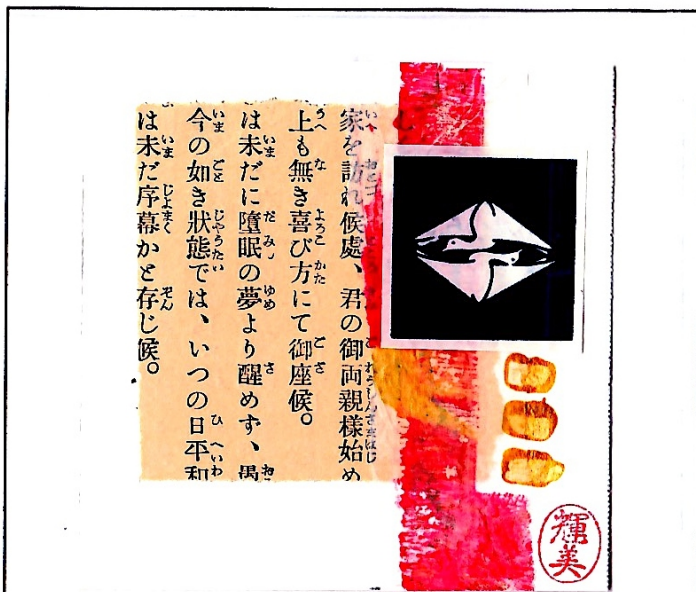 家を訪れ候處、君の御両親樣始め
上も無き喜び方にて御座候。
は未だに墮眠の夢より醒めず、
今の如き狀態では、いつの日平和
は未だ序幕かと存じ候。
輝美